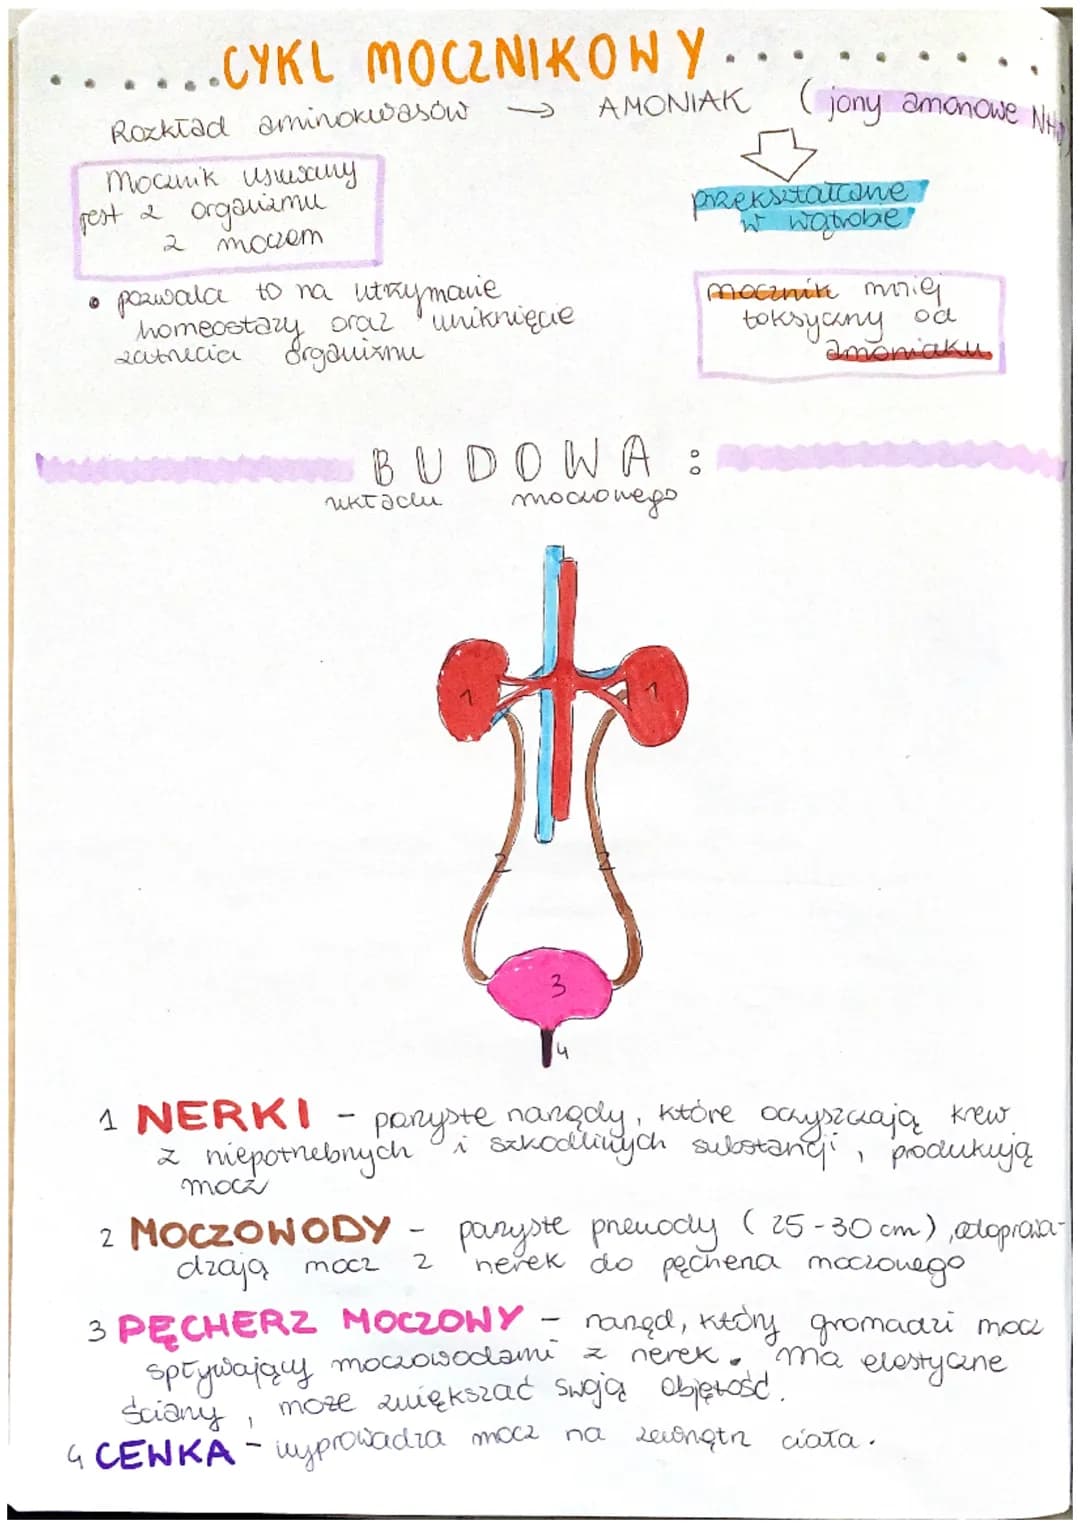 CYKL MOCZNIKOWY
Rozkład aminokwasów → AMONIAK (jony amonowe
Mocznik usuwany
jest z organizmu
z moczem
przekształcane
w wątrobie
• pozwala to na utrzymanie
homeostazy oraz uniknięcie
zatrucia organizmu
mocznik mniej
toksyczny od
amoniaku
BUDOWA :
układu moczowego
1
1
2
2
3
4
1 NERKI - parzyste narządy, które oczyszczają krew
z niepotrzebnych i szkodliwych substancji, produkują
mocz
2 MOCZOWODY - parzyste przewody (25-30 cm), odprowa-
dzają mocz z nerek do pęcherza moczowego
3 PĘCHERZ MOCZOWY - narząd, który gromadzi mocz
spływający moczowodami z nerek. Ma elastyczne
ściany, może zwiększać swoją objętość.
4 CEWKA - wyprowadza mocz na zewnątrz ciała.